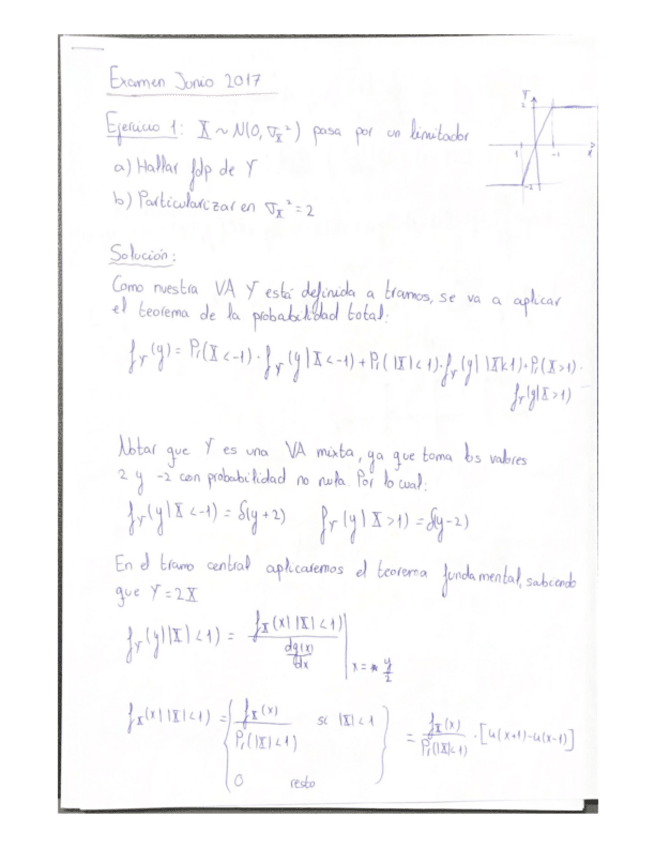 Examen Junio 2017
Ejercicio 1: X ~ N(0, σx²) pasa por un limitador
a) Hallar fdp de Y
b) Particularizar en σx² = 2
Y
2
1
-1
x
-2
Solución:
Como nuestra VA Y está definida a tramos, se va a aplicar
el teorema de la probabilidad total:
fY(y) = Pr(X < -1) · fY(y | X < -1) + Pr(|X| < 1) · fY(y | |X| < 1) + Pr(X > 1) ·
fY(y | X > 1)
Notar que Y es una VA mixta, ya que toma los valores
2 y -2 con probabilidad no nula. Por lo cual:
fY(y | X < -1) = δ(y+2) fY(y | X > 1) = δ(y-2)
En el tramo central aplicaremos el teorema fundamental, sabiendo
que Y = 2X
fY(y | |X| < 1) = fX(x | |X| < 1) / (dg(x)/dx) | x = y/2
fX(x | |X| < 1) = { fX(x) / Pr(|X| < 1) si |X| < 1 } = fX(x) / Pr(|X| < 1) · [u(x+1) - u(x-1)]
0 resto